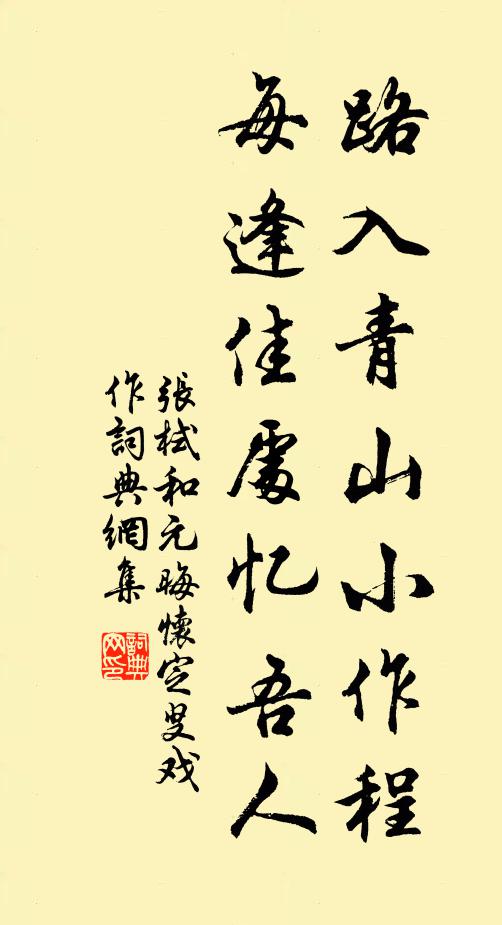 路入青山小作程
每逢佳處忆吾人
張栻和元晦懷定叟戏
作詞典網集
詞典网印